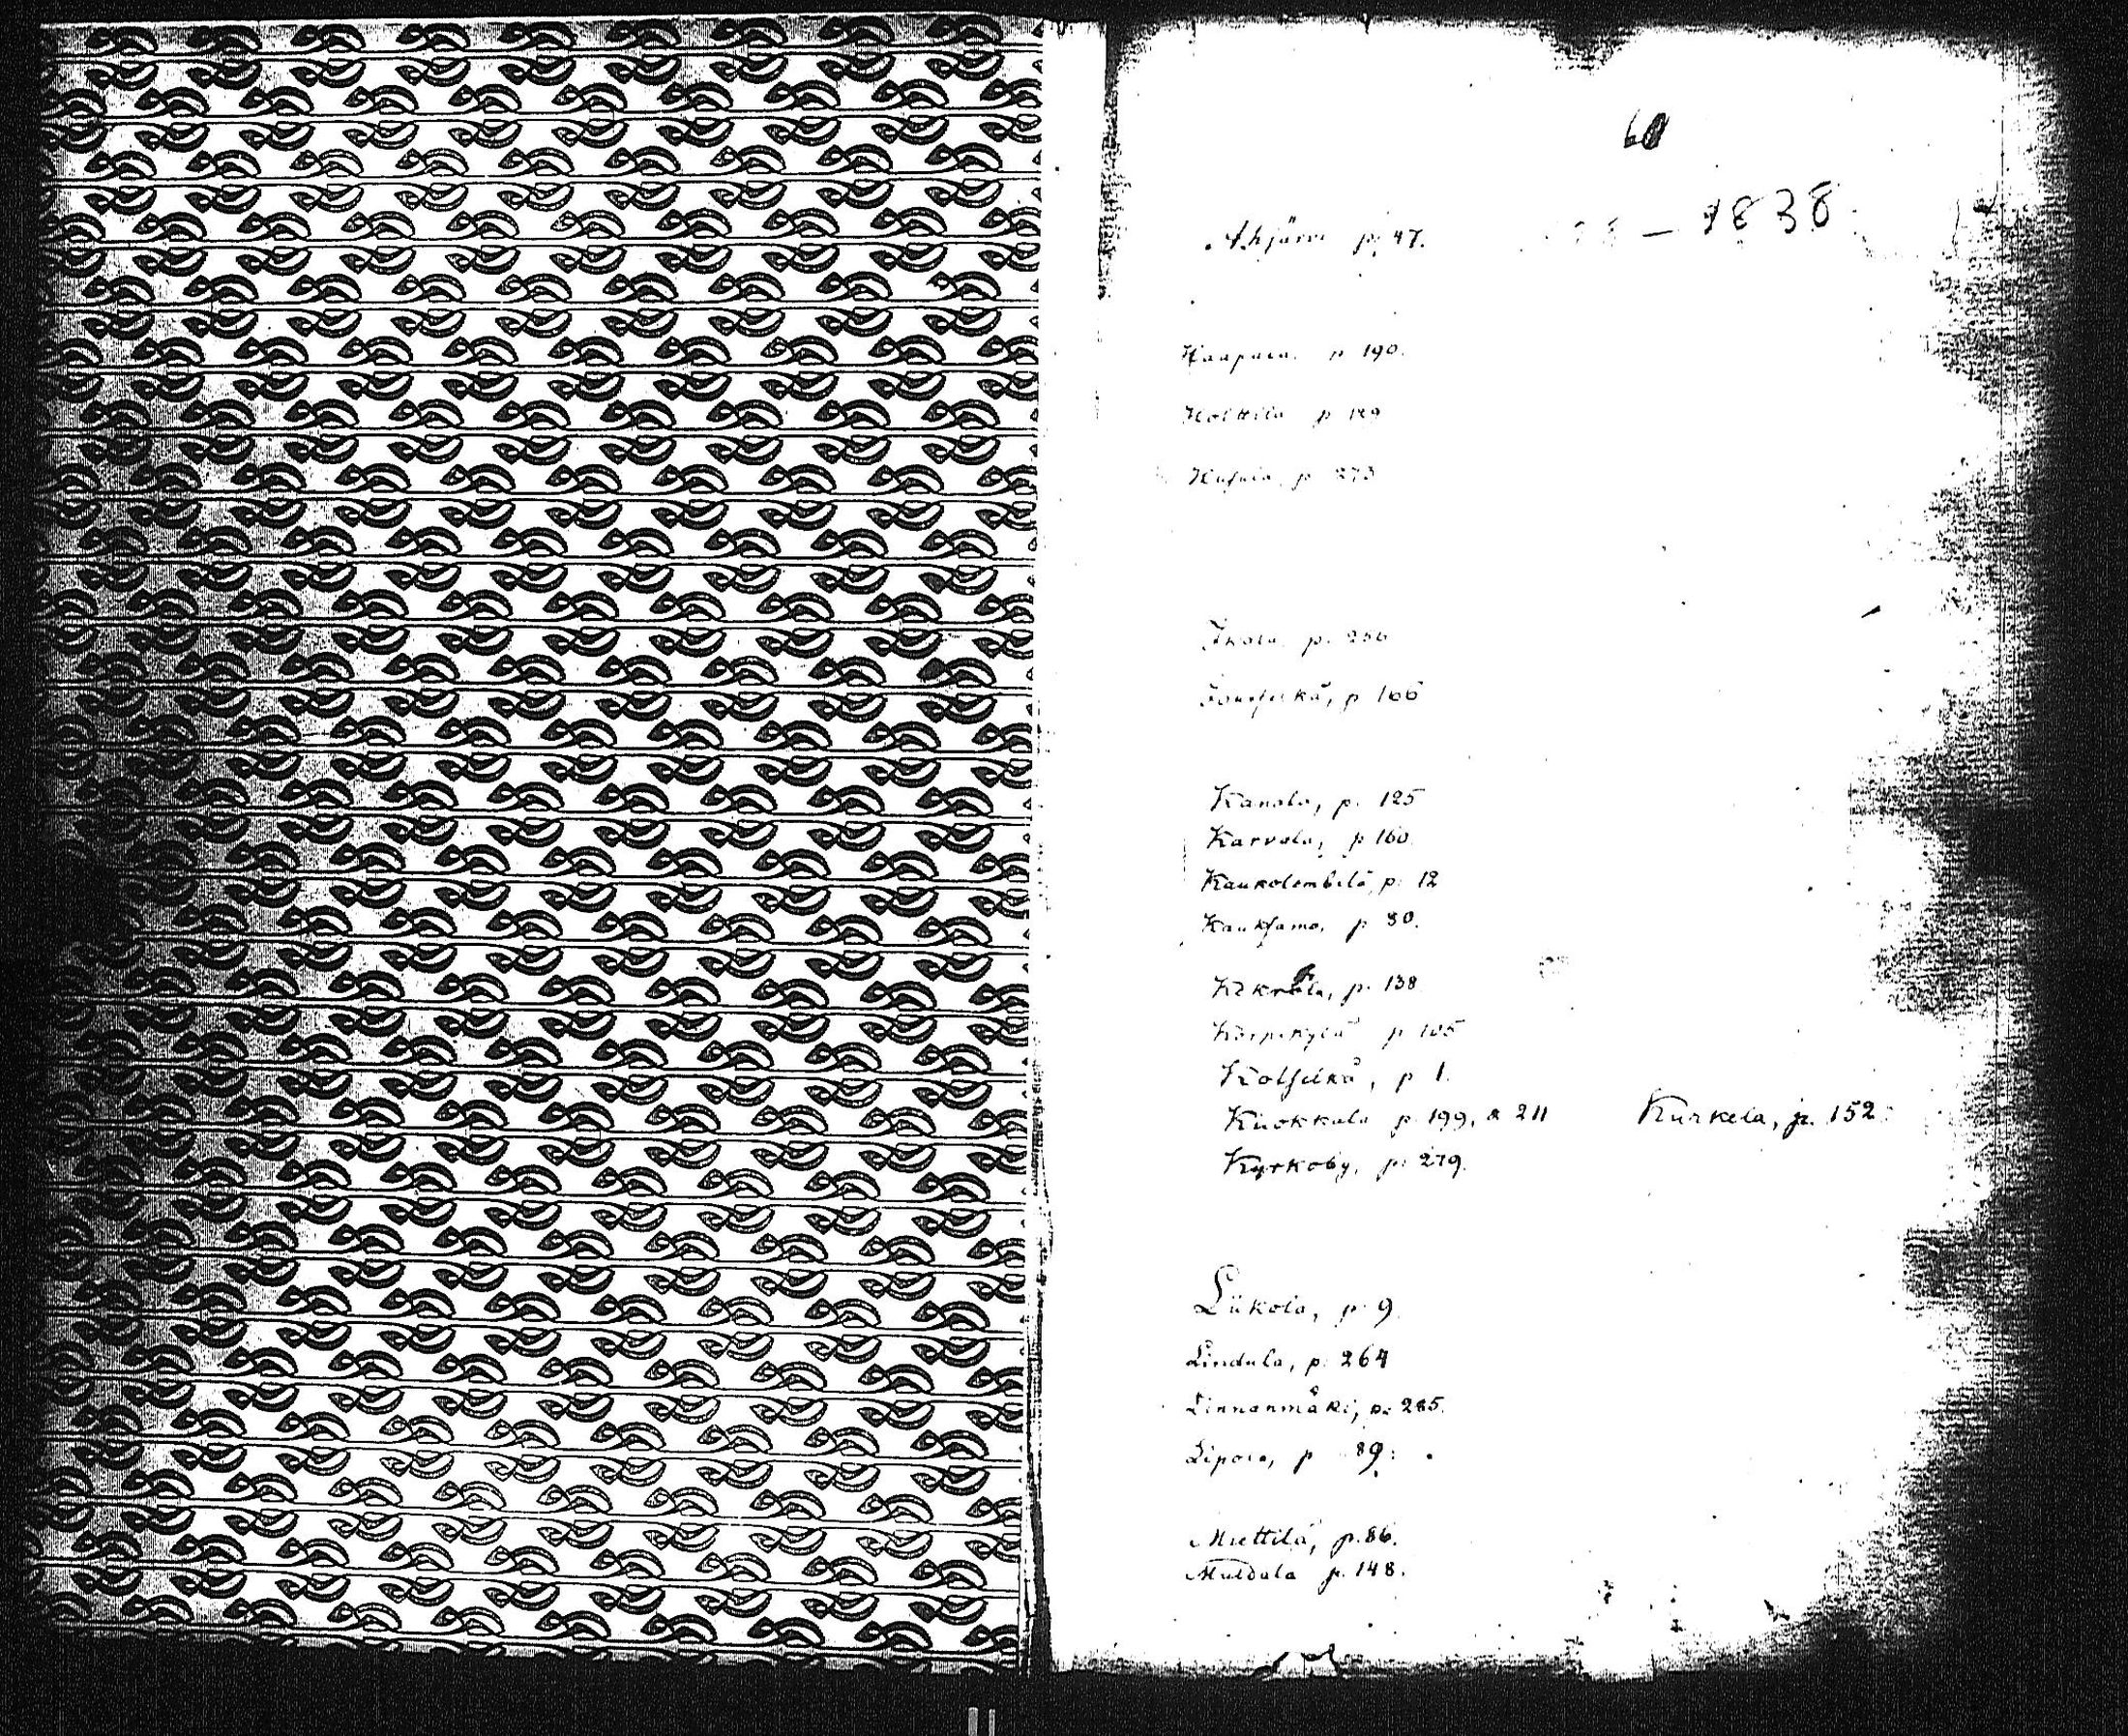 60
Ahjärvi p. 47. – 1838
Haapala. p 190.
Holttila p 189
p 273
Ikola. p. 256
p 166
Kanala, p. 125
Karvala, p 160.
Kaukolembilä, p. 12
Kaukjamo. p 30.
p. 138
Korpikylä p 105
Kotjilkä, p 1.
Kuokkala p. 199, & 211 Kurkela, p. 152
Kyrkoby, p. 279.
Liikola, p. 9
Lindula, p. 264
Linnanmäki, p. 285.
Lipola, p 89.
Miettilä, p. 86.
Muldala p. 148.